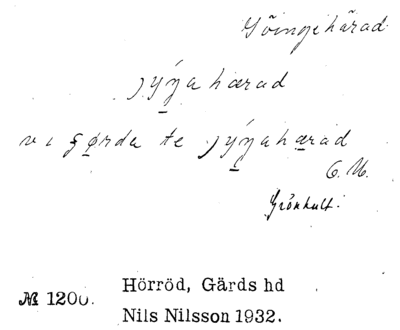 Göingehärad
jýŋa hærad
vi gørda te jýŋahærad
G. N.
Grönhult.
№ 1200. Hörröd, Gärds hd
Nils Nilsson 1932.